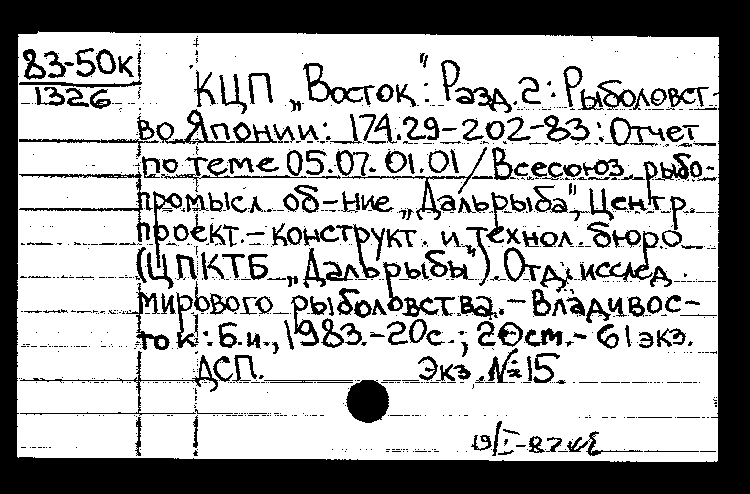 83-50к
1326
КЦП „Восток": Разд. 2: Рыболовст-
во Японии: 174.29-202-83: Отчет
по теме 05.07.01.01 / Всесоюз. рыбо-
промысл. об-ние „Дальрыба", Центр.
проект.-конструкт. и технол. бюро
(ЦПКТБ „Дальрыбы"). Отд. исслед.
мирового рыболовства. - Владивос-
ток: Б.и., 1983.-20с.; 20см.- 61 экз.
ДСП. Экз. № 15.
19/I-87